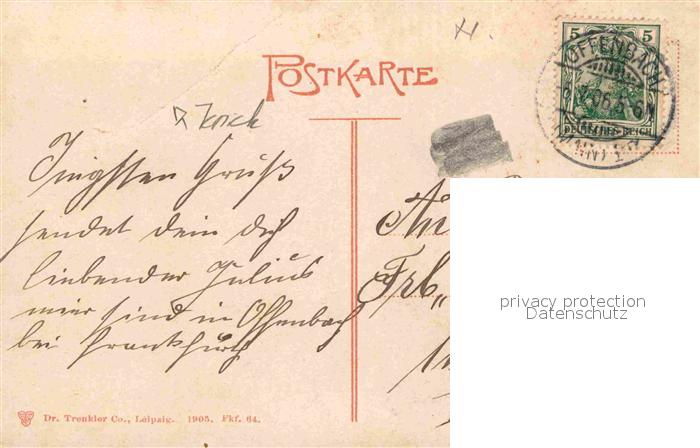 POSTKARTE
5 5
OFFENBACH
DEUTSCHES REICH
Innigsten Gruß
sendet dein dich
liebender Julius
wier sind in Offenbach
bei Frankfurth
Frl.
privacy protection
Datenschutz
Dr. Trenkler Co., Leipzig. 1905. Fkf. 64.